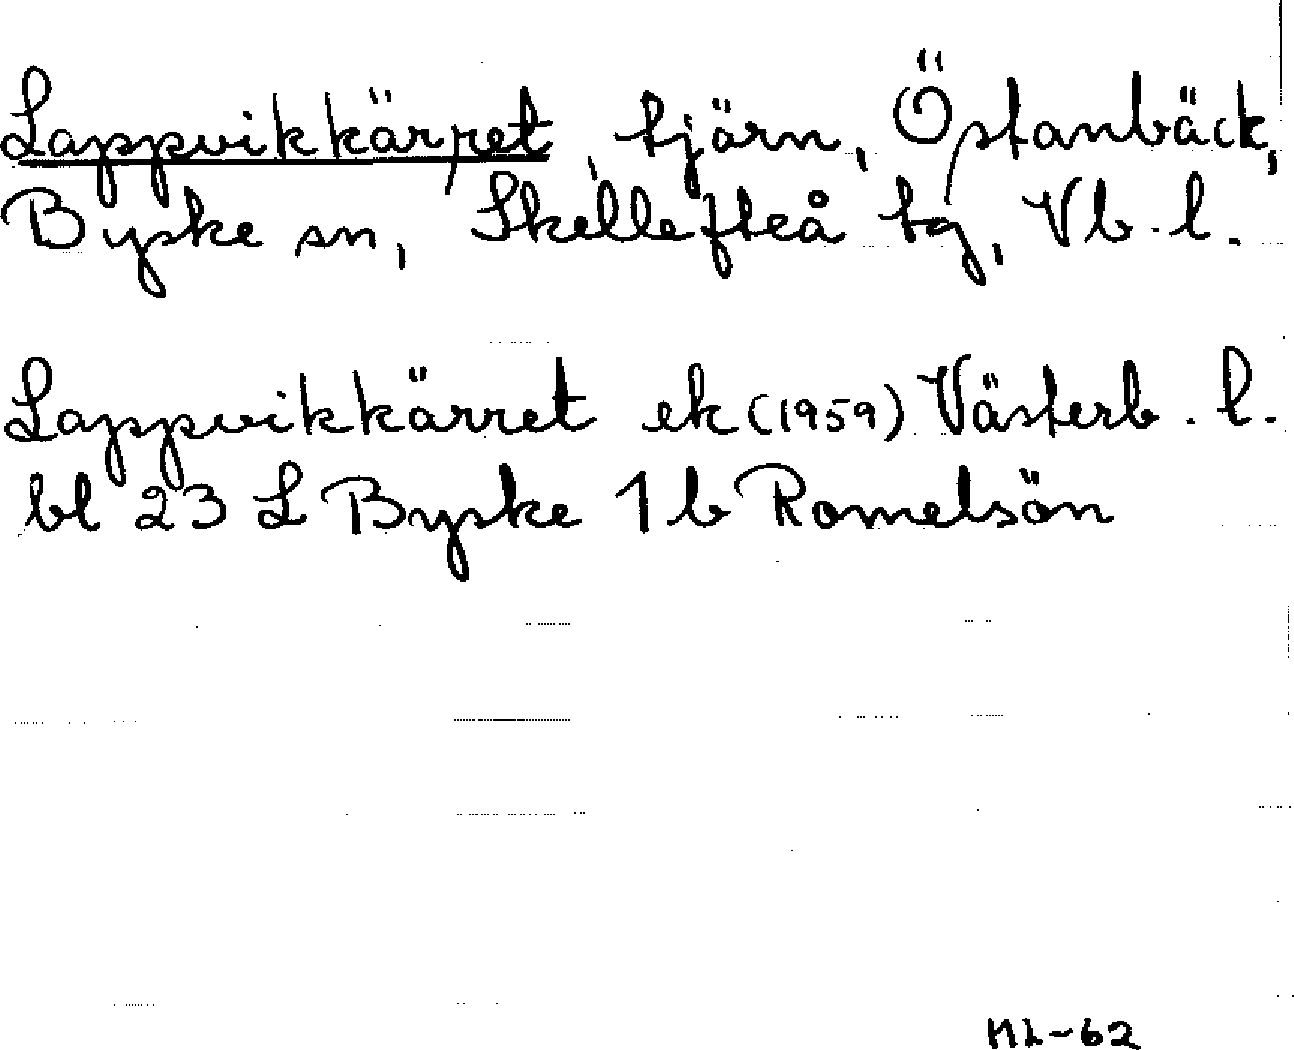 Lappvikkärret, tjärn, Östanbäck,
Byske sn, Skellefteå tg, Vb. l.
Lappvikkärret ek (1959) Västerb. l.
bl 23 L Byske 1 b Romelsön
ML-62